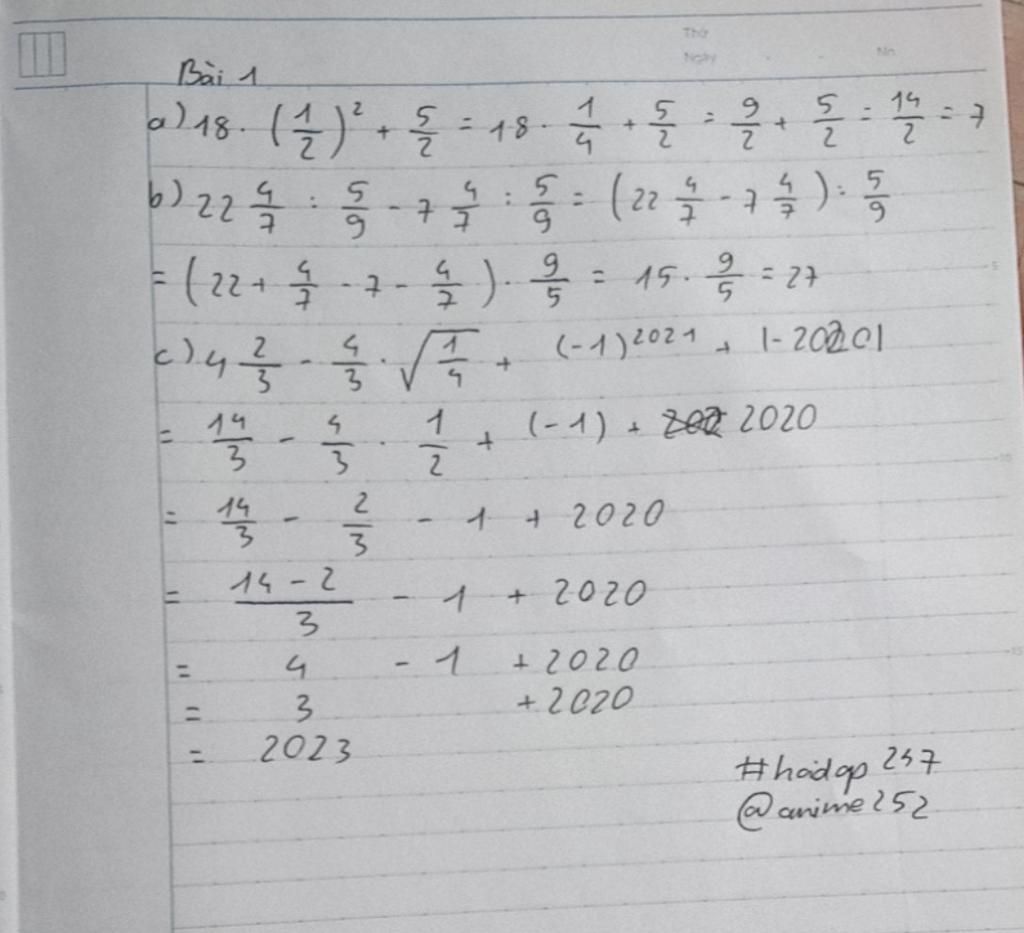 Thứ
Ngày No
Bài 1
a) 18 · (1/2)² + 5/2 = 18 · 1/4 + 5/2 = 9/2 + 5/2 = 14/2 = 7
b) 22 4/7 : 5/9 - 7 4/7 : 5/9 = (22 4/7 - 7 4/7) : 5/9
= (22 + 4/7 - 7 - 4/7) · 9/5 = 15 · 9/5 = 27
c) 4 2/3 - 4/3 · √(1/4) + (-1)²⁰²¹ + |-2020|
= 14/3 - 4/3 · 1/2 + (-1) + 2020
= 14/3 - 2/3 - 1 + 2020
= (14 - 2)/3 - 1 + 2020
= 4 - 1 + 2020
= 3 + 2020
= 2023
#hoidap247
@anime252